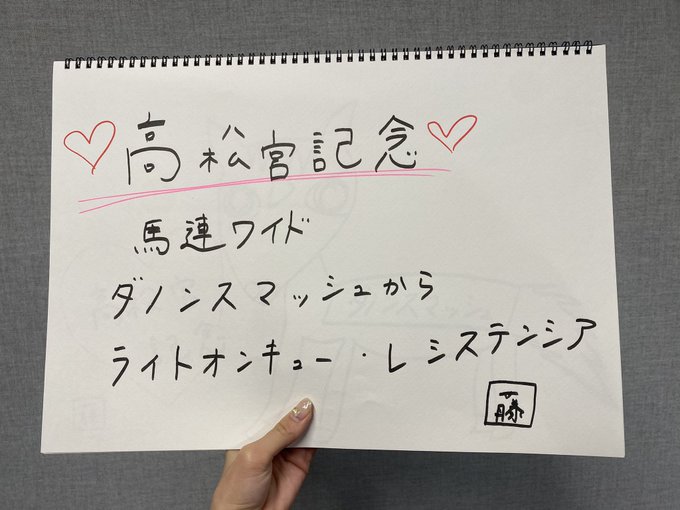 高松宮記念
馬連ワイド
ダノンスマッシュから
ライトオンキュー・レシステンシア
藤